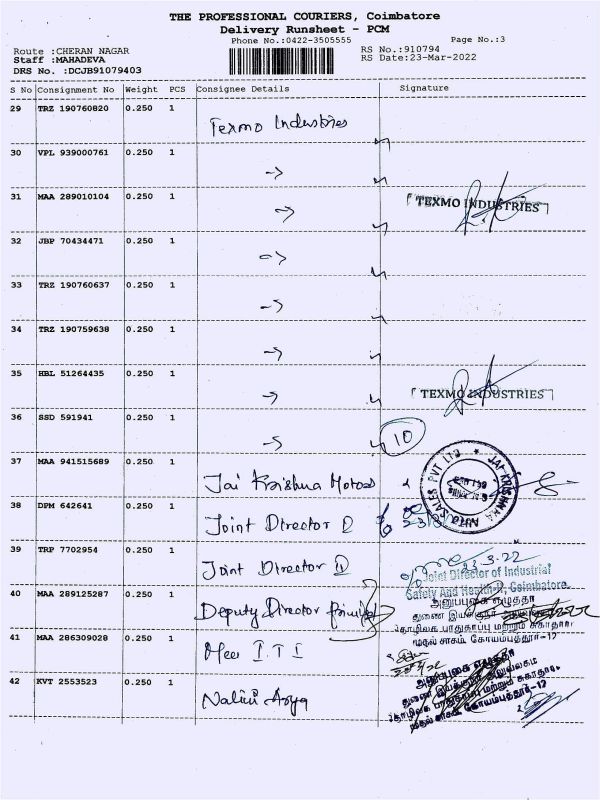 THE PROFESSIONAL COURIERS, Coimbatore
Delivery Runsheet - PCM
Phone No.:0422-3505555
Page No.:3
Route :CHERAN NAGAR
Staff :MAHADEVA
DRS No. :DCJB91079403
RS No.:910794
RS Date:23-Mar-2022
S No Consignment No Weight PCS Consignee Details Signature
29 TRZ 190760820 0.250 1 Texmo Industries
30 VPL 939000761 0.250 1
31 MAA 289010104 0.250 1 TEXMO INDUSTRIES
32 JBP 70434471 0.250 1
33 TRZ 190760637 0.250 1
34 TRZ 190759638 0.250 1
35 HBL 51264435 0.250 1 TEXMO INDUSTRIES
36 SSD 591941 0.250 1 10
37 MAA 941515689 0.250 1 Jai Krishna Motors
JAI KRISHNAA AUTO SALES PVT LTD
38 DPM 642641 0.250 1 Joint Director
39 TRP 7702954 0.250 1 Joint Director II
23.3.22
Joint Director of Industrial
Safety And Health-II, Coimbatore
40 MAA 289125287 0.250 1 Deputy Director
அனுப்புகை எழுத்தர்
41 MAA 286309028 0.250 1 I.T.I
முதல் சரகம், கோயம்புத்தூர்-17
42 KVT 2553523 0.250 1 Nalini Arya
முதல் சரகம், கோயம்புத்தூர்-17